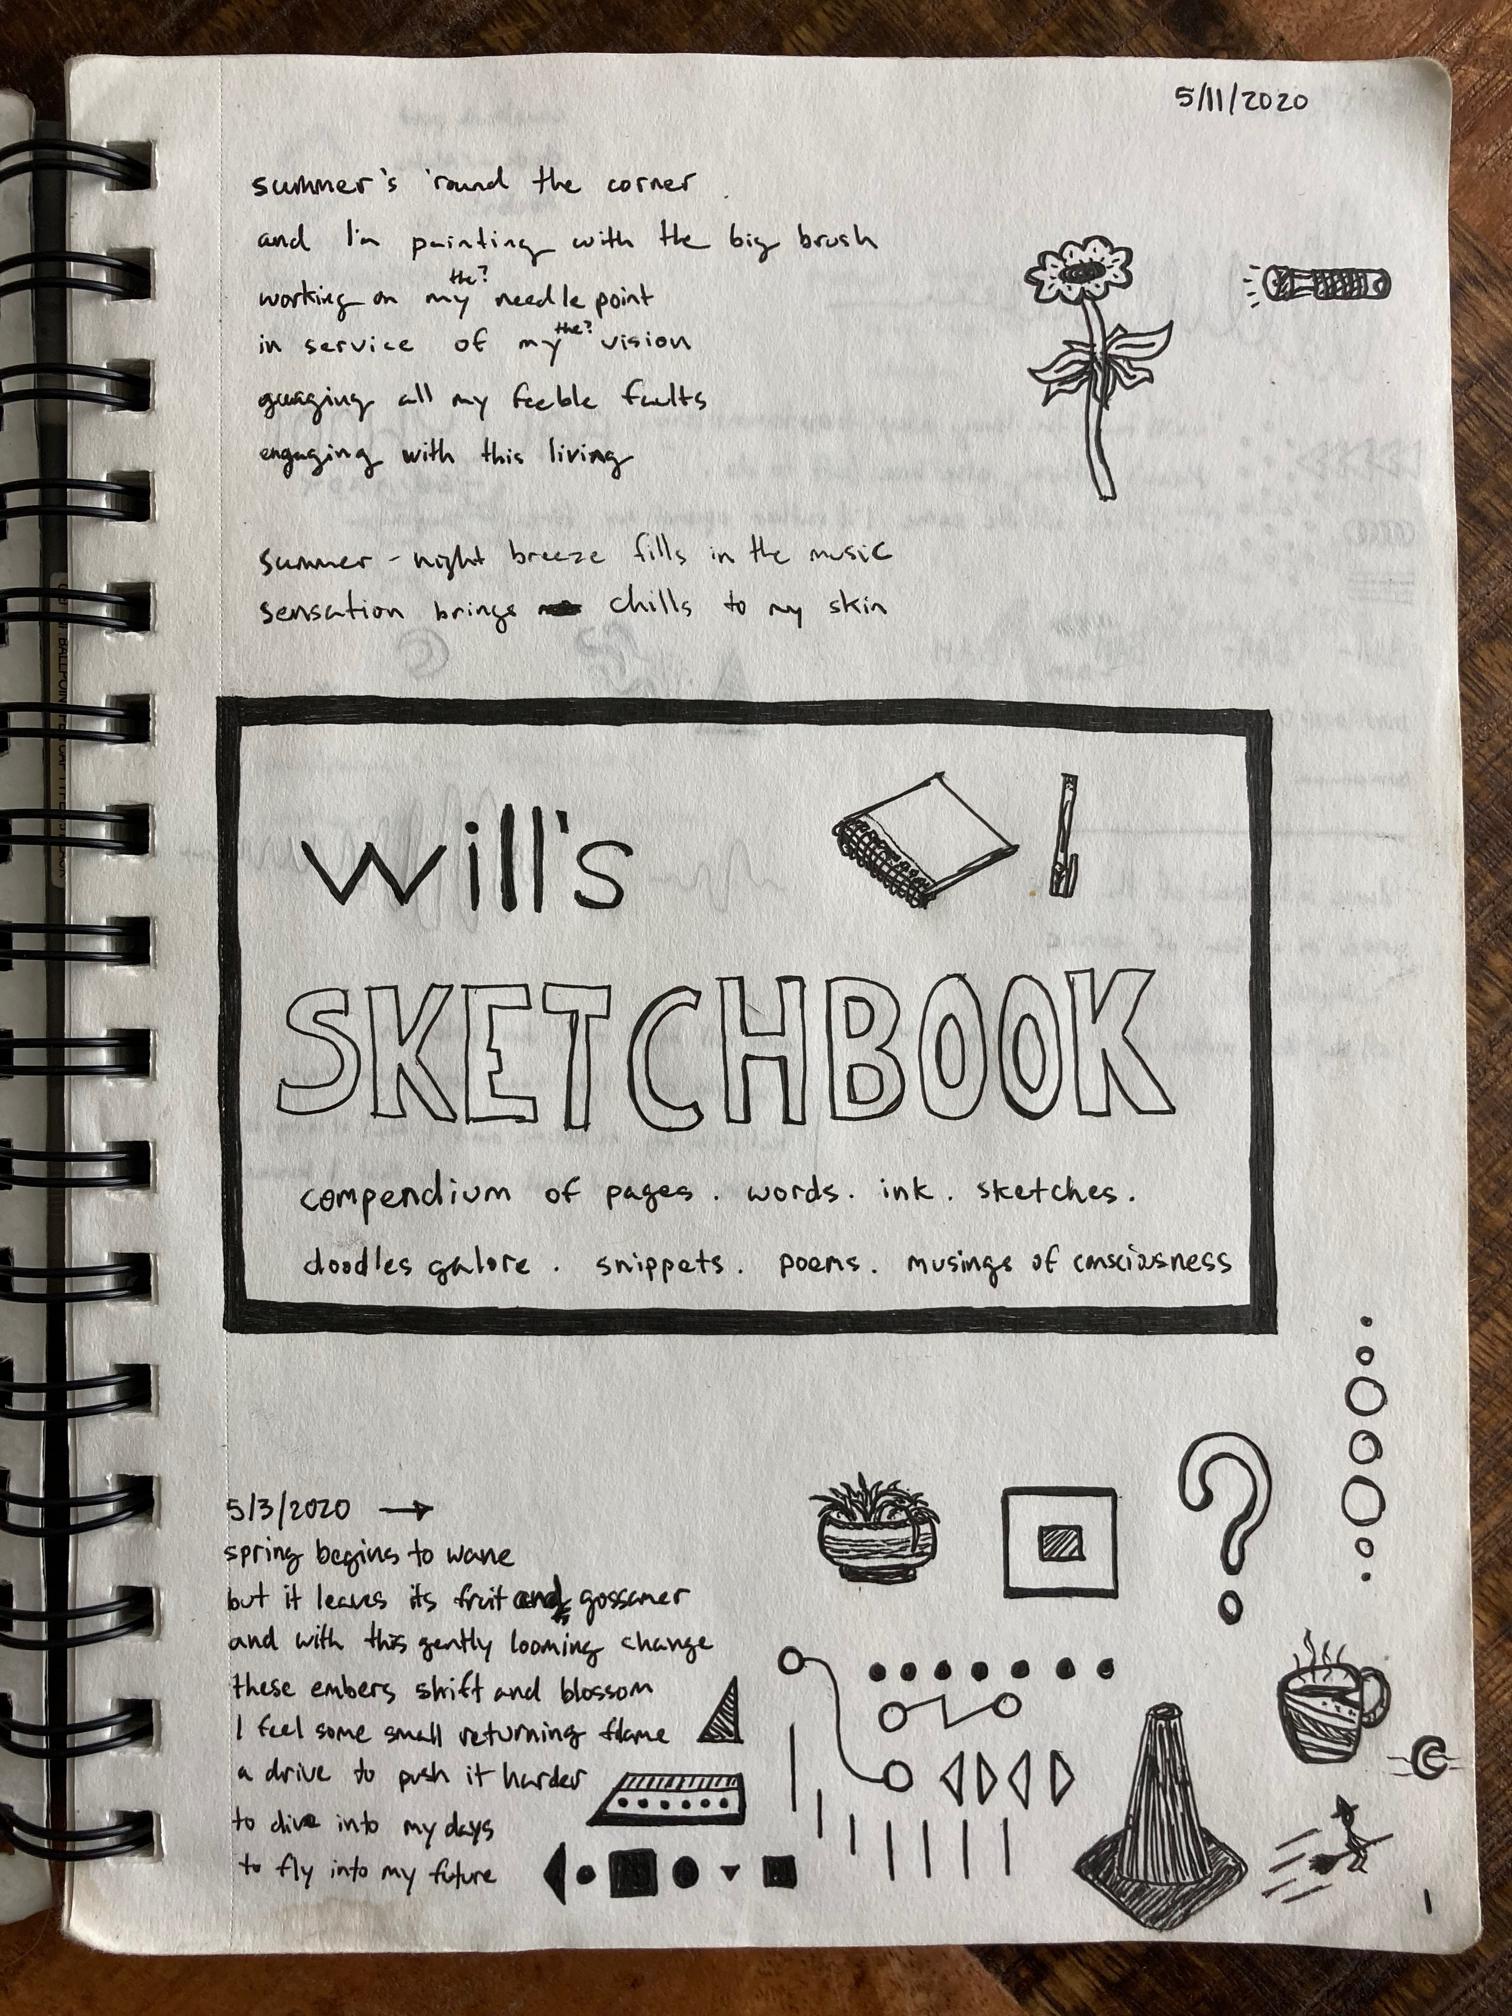 5/11/2020
summer's 'round the corner
and I'm painting with the big brush
working on my the? needle point
in service of my the? vision
guaging all my feeble faults
engaging with this living
summer-night breeze fills in the music
sensation brings chills to my skin
will's
SKETCHBOOK
compendium of pages. words. ink. sketches.
doodles galore. snippets. poems. musings of consciousness
5/3/2020 →
spring begins to wane
but it leaves its fruit gossamer
and with this gently looming change
these embers shift and blossom
I feel some small returning flame
a drive to push it harder
to dive into my days
to fly into my future
1